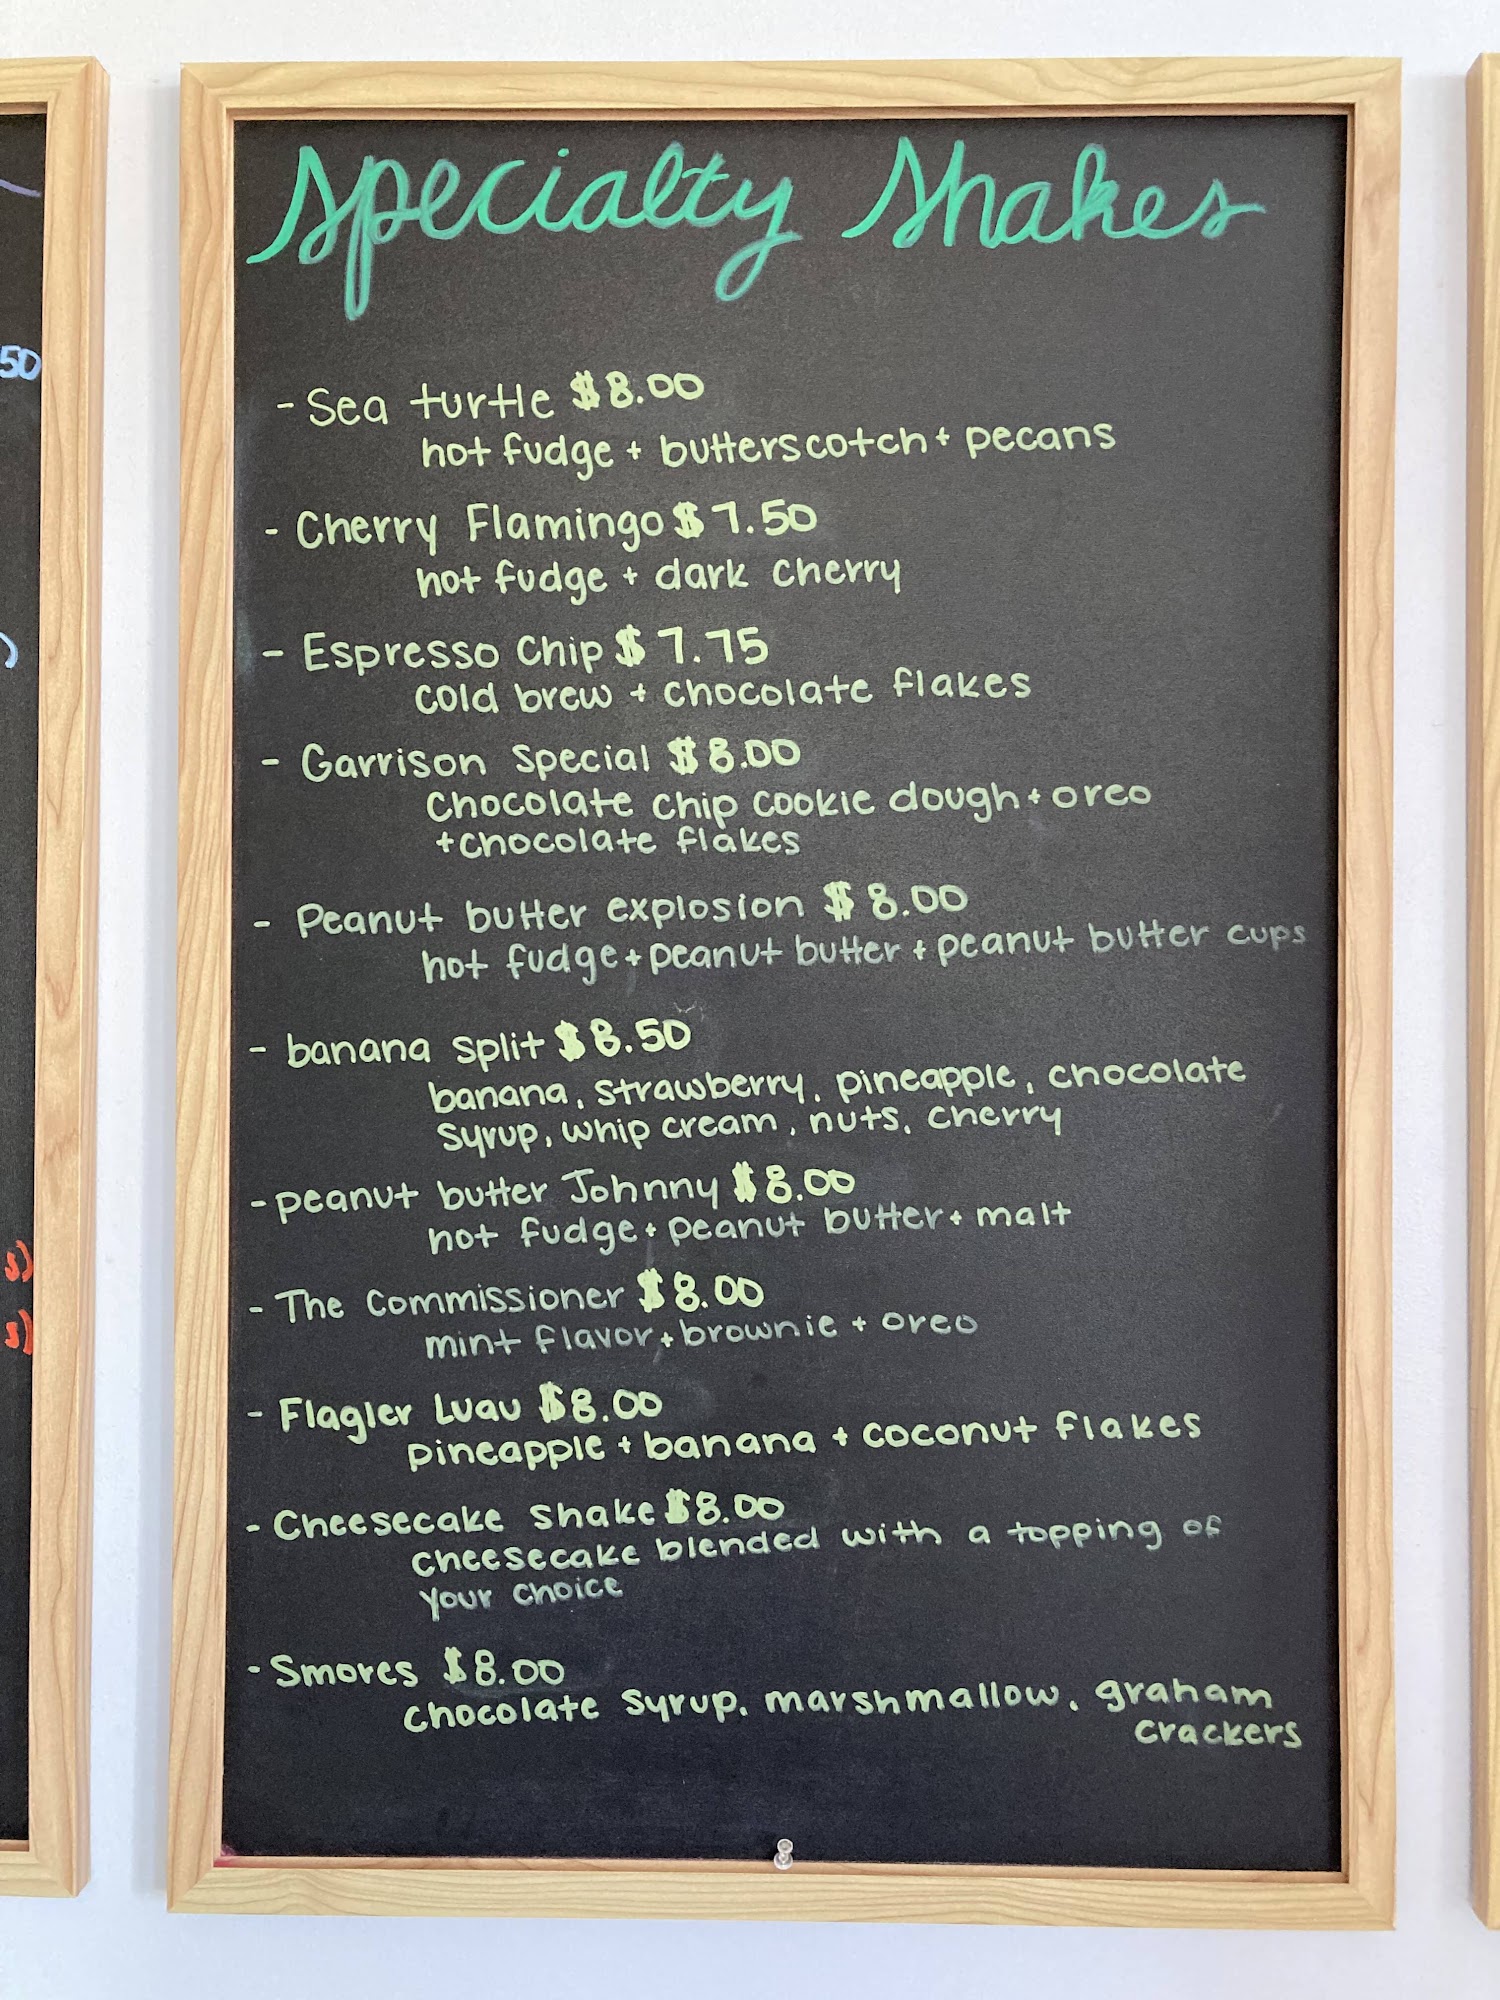 Specialty Shakes
- Sea turtle $8.00
hot fudge + butterscotch + pecans
- Cherry Flamingo $7.50
hot fudge + dark cherry
- Espresso Chip $7.75
cold brew + chocolate flakes
- Garrison Special $8.00
chocolate chip cookie dough + oreo
+ chocolate flakes
- Peanut butter explosion $8.00
hot fudge + peanut butter + peanut butter cups
- banana split $8.50
banana, strawberry, pineapple, chocolate
syrup, whip cream, nuts, cherry
- peanut butter Johnny $8.00
hot fudge + peanut butter + malt
- The Commissioner $8.00
mint flavor + brownie + oreo
- Flagler Luau $8.00
pineapple + banana + coconut flakes
- Cheesecake shake $8.00
cheesecake blended with a topping of
your choice
- Smores $8.00
chocolate syrup, marshmallow, graham
crackers
50
s)
s)